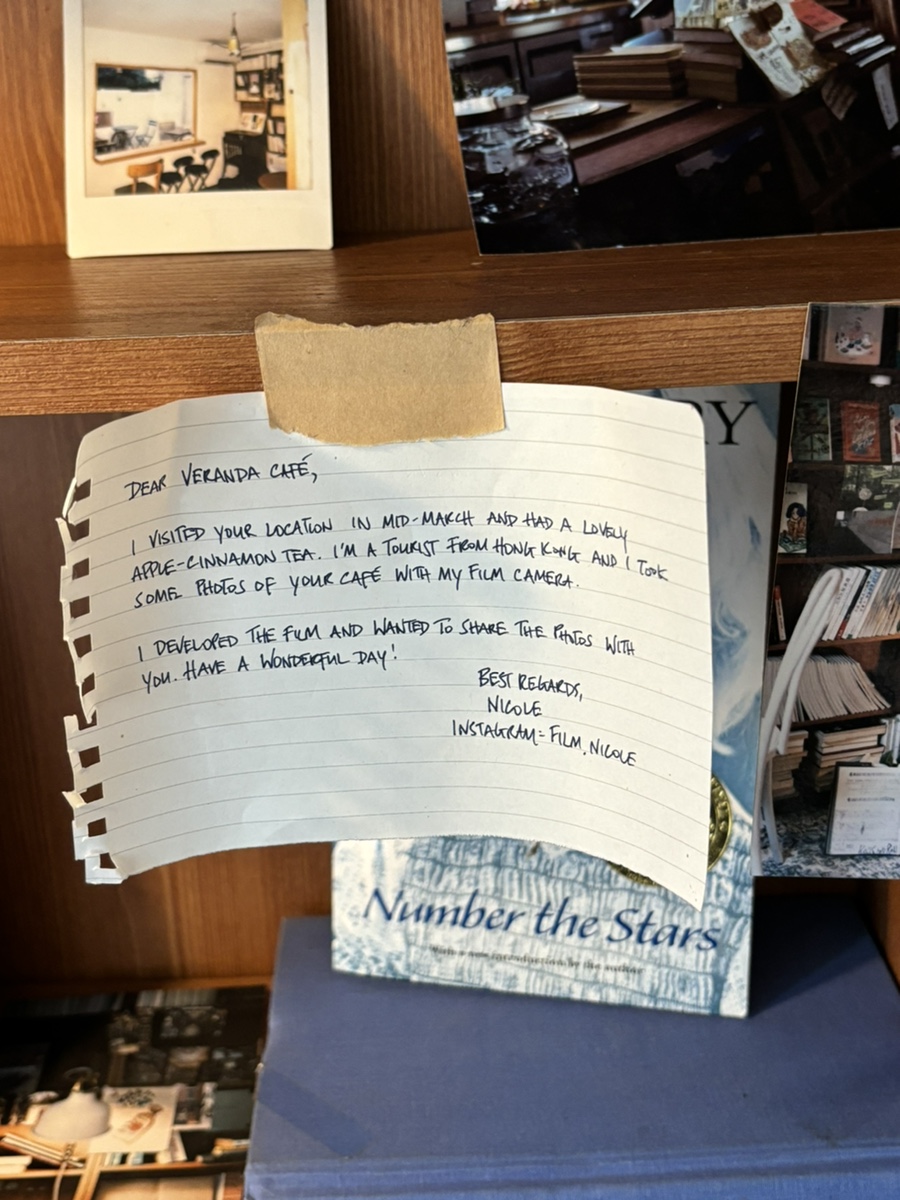 DEAR VERANDA CAFÉ,
I VISITED YOUR LOCATION IN MID-MARCH AND HAD A LOVELY
APPLE-CINNAMON TEA. I'M A TOURIST FROM HONG KONG AND I TOOK
SOME PHOTOS OF YOUR CAFÉ WITH MY FILM CAMERA.
I DEVELOPED THE FILM AND WANTED TO SHARE THE PHOTOS WITH
YOU. HAVE A WONDERFUL DAY!
BEST REGARDS,
NICOLE
INSTAGRAM: FILM.NICOLE
RY
Number the Stars
With a new introduction by the author